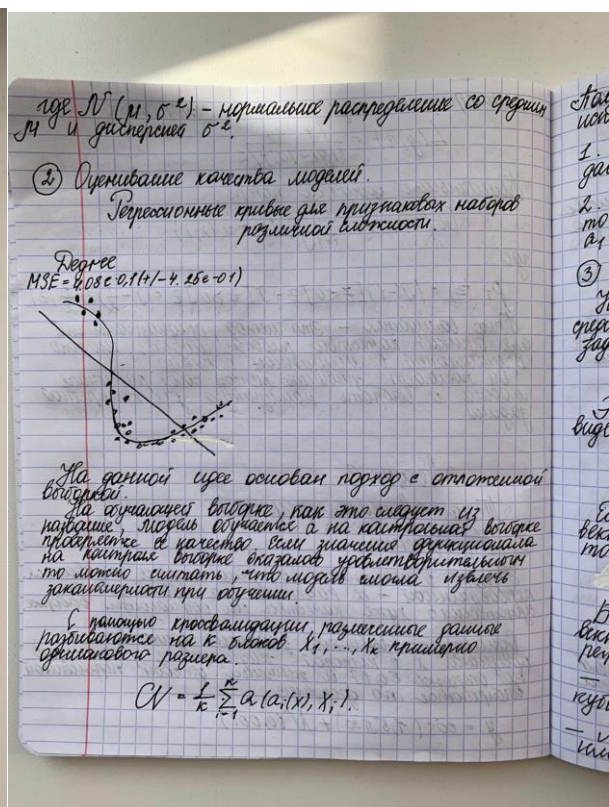 где N(μ, σ²) – нормальное распределение со средним
μ и дисперсией σ².
② Оценивание качества моделей.
Регрессионные кривые для признаковых наборов
различной сложности.
Degree
MSE = 4.08e-0.1(+/-4.25e-01)
На данной идее основан подход с отложенной
выборкой.
На обучающей выборке, как это следует из
название, модель обучается а на контрольная выборке
проверяется её качество. Если значение функционала
на контрол выборке оказалов удовлетворительным
то можно считать, что модель смогла извлечь
закономерности при обучении.
С помощью кроссвалидации, размеченные данные
разбиваются на k блоков X₁, ..., Xₖ примерно
одинакового размера.
CV = 1/k Σ Q(aᵢ(x), Xᵢ).
1.
2.
то
a₁
③
виде
то